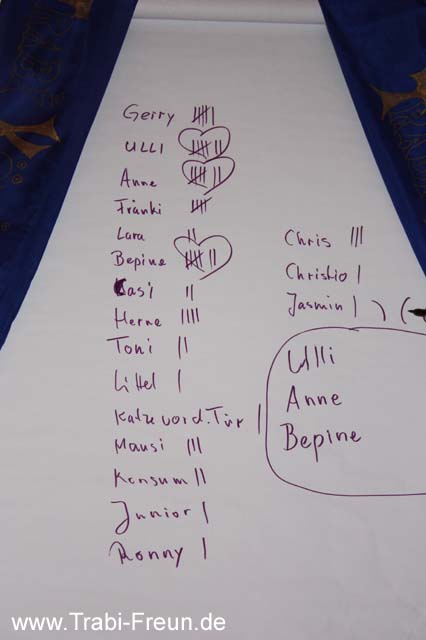 Gerry 𝍸 |
ULLI 𝍸 ||
Anne 𝍸 ||
Fränki 𝍸
Lara ||
Bepine 𝍸 ||
Kasi ||
Herne ||||
Toni ||
Littel |
Katze vor d. Tür |
Mausi |||
Konsum ||
Junior |
Ronny |
Chris |||
Christio |
Jasmin |
Ulli
Anne
Bepine
www.Trabi-Freun.de